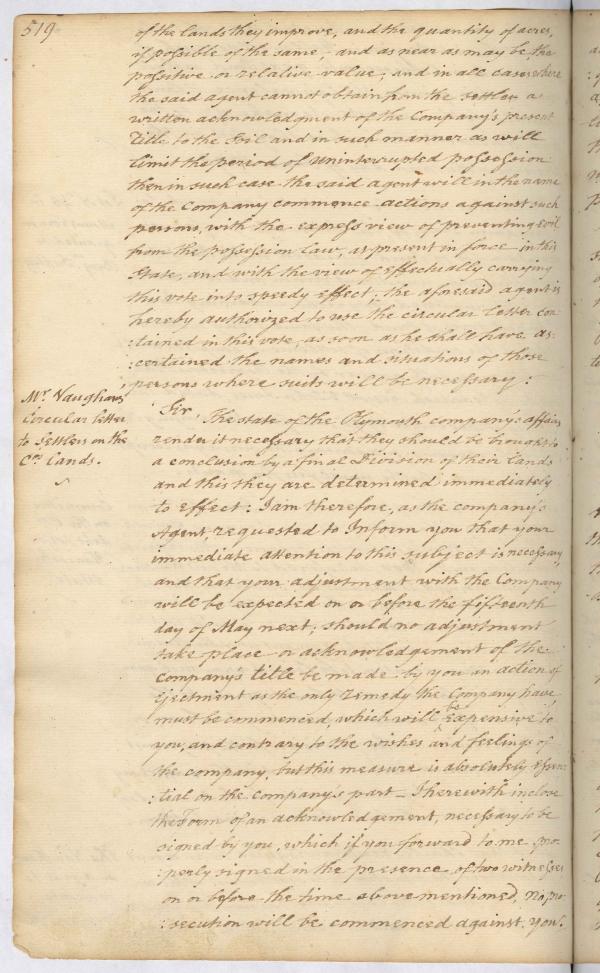 519
of the lands they improve, and the quantity of acres,
if possible of the same, and as near as may be, the
possitive or relative value, and in all cases where
the said agent cannot obtain from the settler a
written acknowledgment of the Company's present
Title to the Soil and in such manner as will
limit the period of uninterrupted possession
then in such case the said agent will in the name
of the Company commence actions against such
persons, with the express view of preventing evil
from the possession law, at present in force in this
State, and with the view of effectually carrying
this vote into speedy effect; the aforesaid agent is
hereby authorized to use the circular letter con
:tained in this vote, as soon as he shall have as:
:certained the names and situations of those
persons where suits will be necessary:
Mr. Vaughan's
Circular letter
to Settlers on the
Co. Lands.
Sir, The state of the Plymouth company's affairs
render it necessary that they should be brought to
a conclusion by a final Division of their lands
and this they are determined immediately
to effect: I am therefore, as the company's
Agent, requested to Inform you that your
immediate attention to this subject is necessary
and that your adjustment with the Company
will be expected on or before the fifteenth
day of May next; should no adjustment
take place or acknowledgement of the
company's title be made by you an action of
Ejectment as the only remedy the Company have,
must be commenced, which will be expensive to
you, and contrary to the wishes and feelings of
the company, but this measure is absolutely essen
:tial on the company's part – I herewith inclose
the Form of an acknowledgement, necessary to be
signed by you, which if you forward to me, pro
:perly signed in the presence of two witnesses
on or before the time above mentioned, no pro
:secution will be commenced against you.